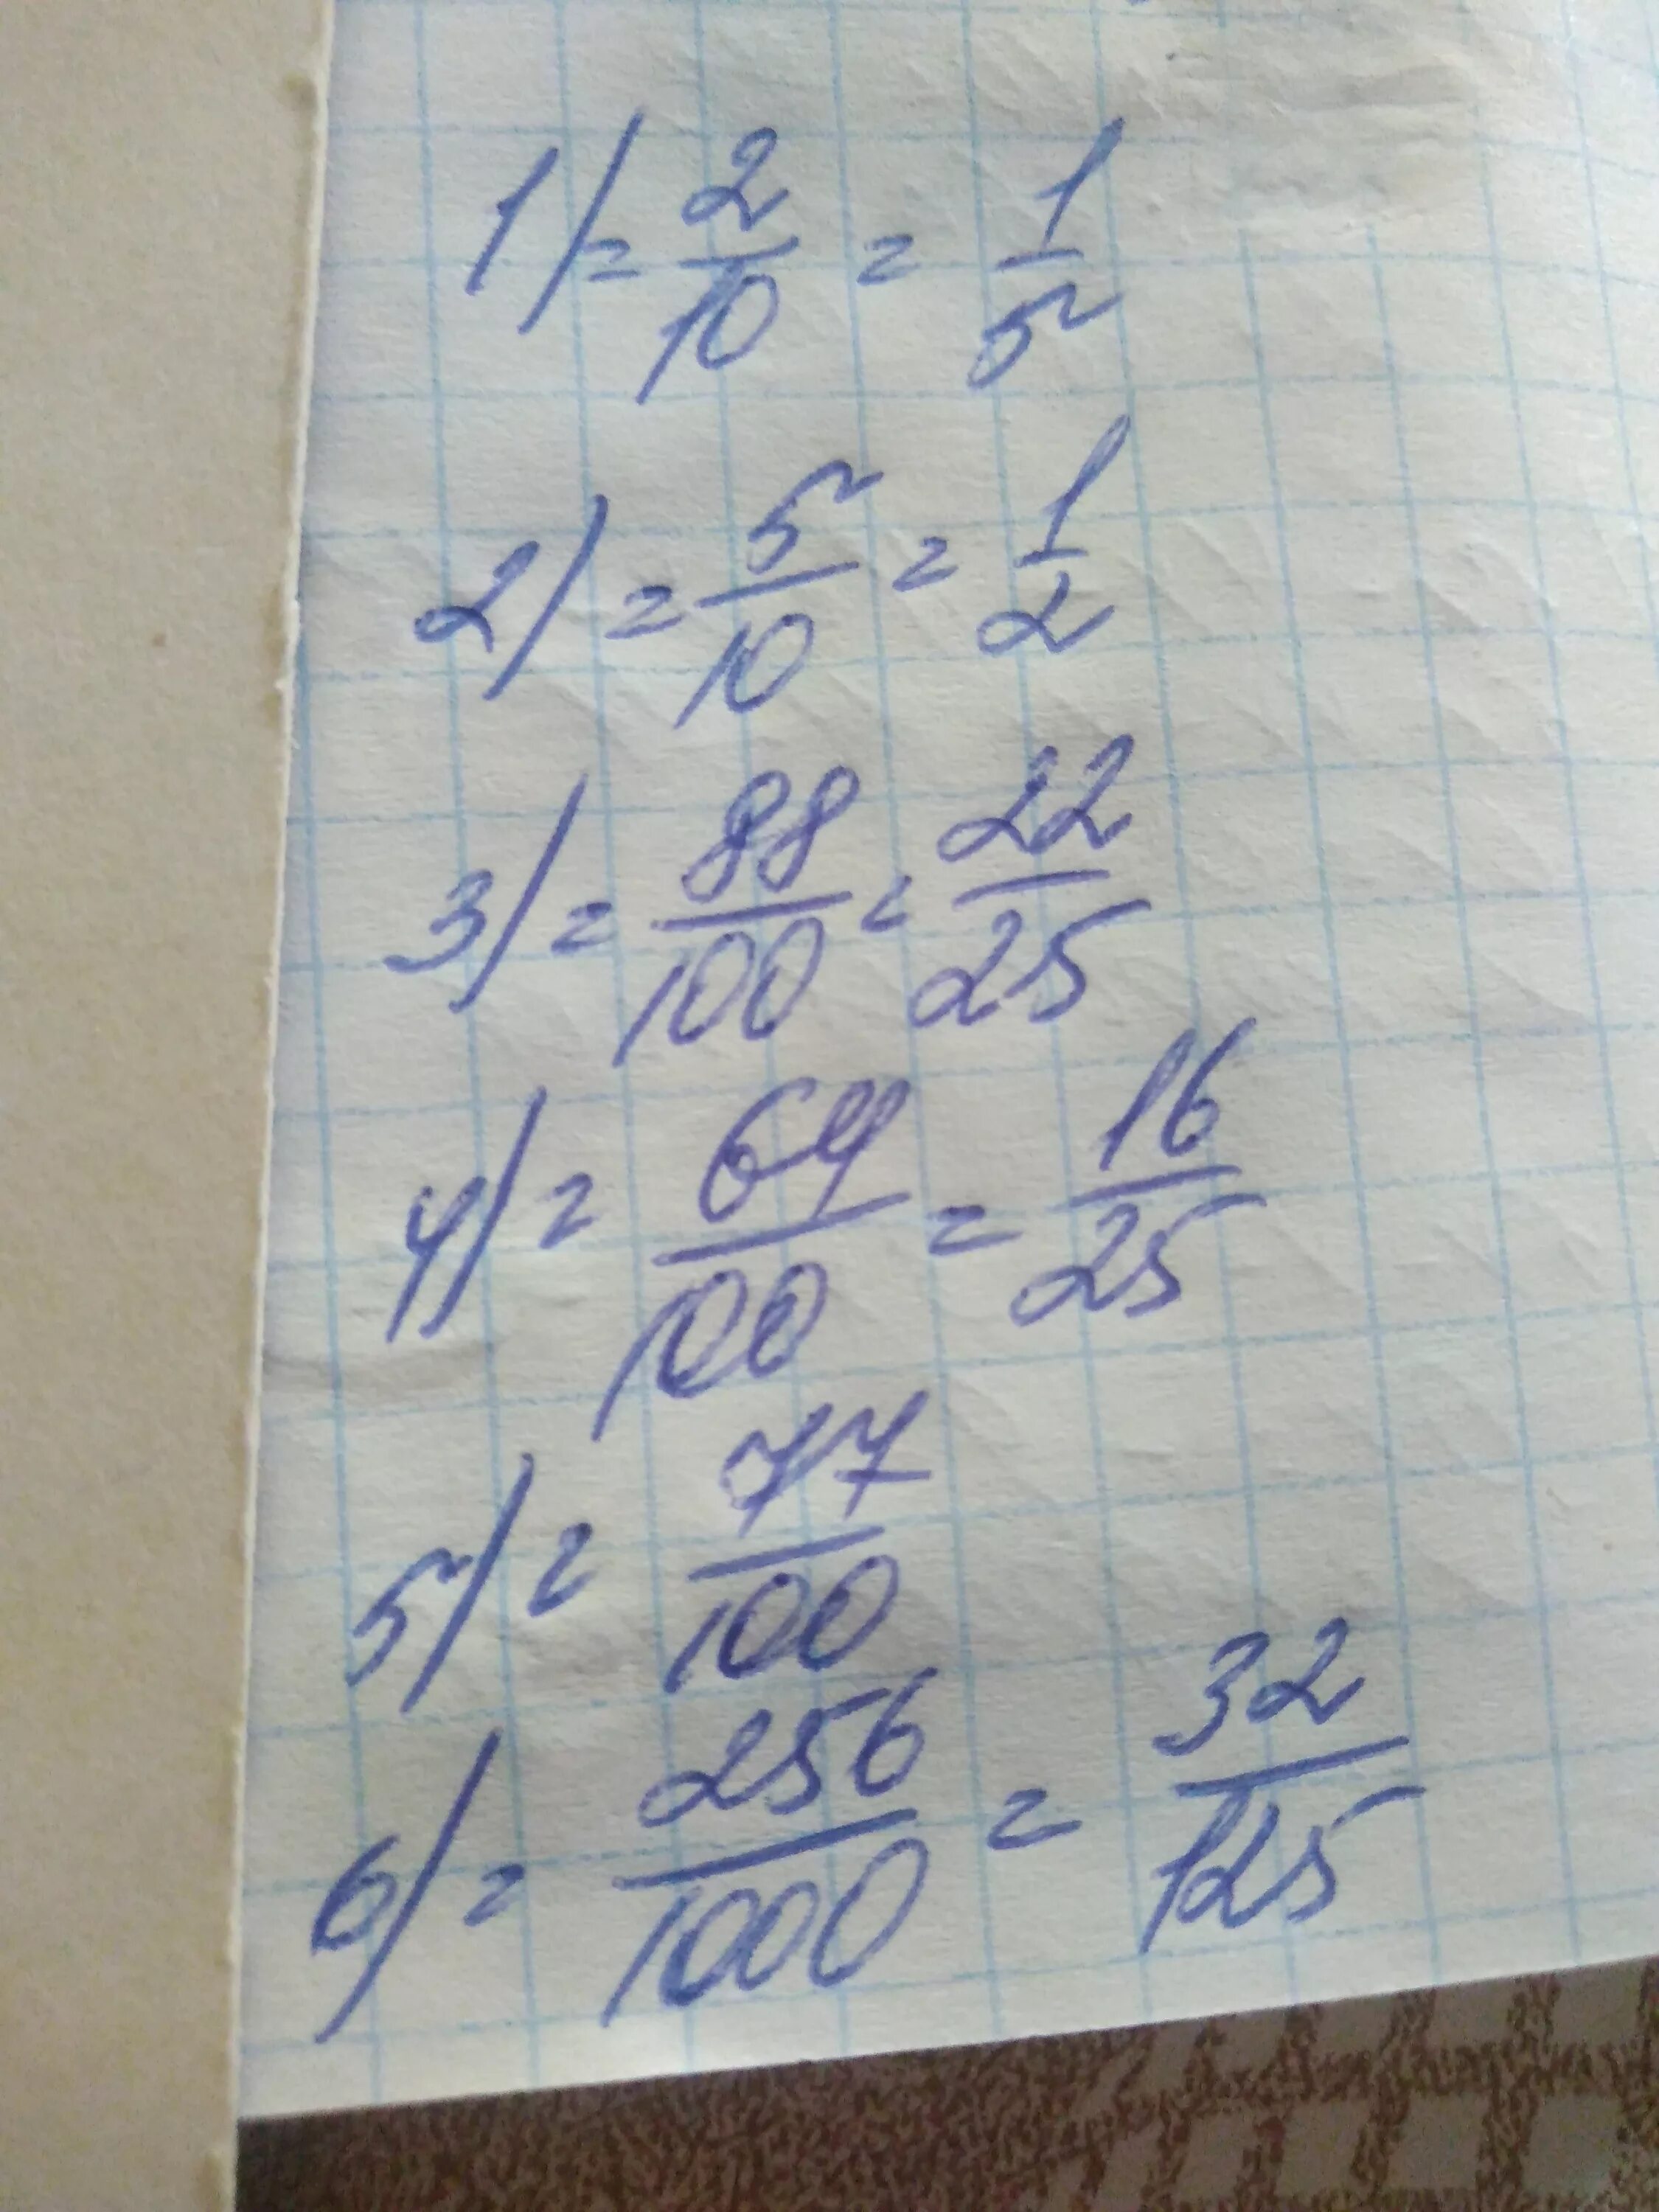 1) = 2/10 = 1/5
2) = 5/10 = 1/2
3) = 88/100 = 22/25
4) = 64/100 = 16/25
5) = 77/100
6) = 256/1000 = 32/125